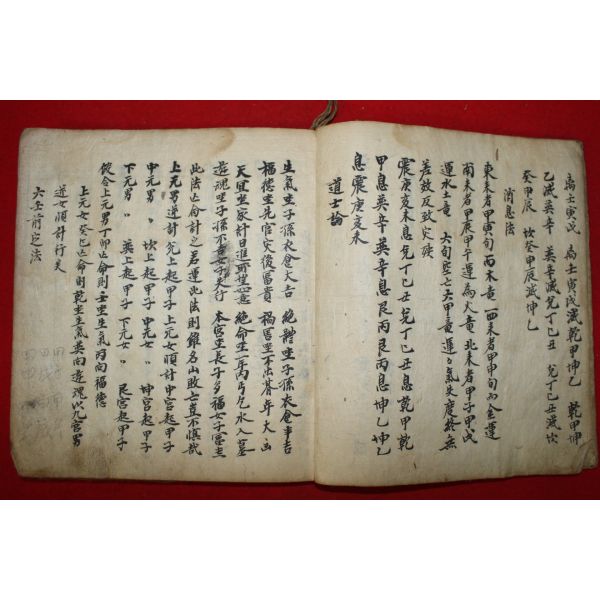 离壬寅戌 离壬寅戌滅乾甲坤乙 乾甲坤
乙滅巽辛 巽辛滅兌丁巳丑 兌丁巳丑滅坎
癸甲辰 坎癸甲辰滅坤乙
消息法
東來者甲寅旬 而木 運 西來者甲申旬 而金運
南來者甲辰甲午運 為火竜 北來者甲子甲戌
運水土竜 大旬 六甲竜運 氣失度 無
差故反致灾殃
震庚亥未息兌丁巳丑 兌丁巳丑息乾甲 乾
甲息巽辛 巽辛息艮丙 艮丙息坤乙 坤乙
息震庚亥未
道士論
生氣坐子孫衣食大吉 絶體坐子孫衣食半吉
福德坐先官灾後富貴 禍害坐不出朞年大凶
天宜坐家計日進所望如意 絶命坐一年內 水入墓
遊魂坐子孫不吉女子失行 本宮坐長子多福女子富
此法 命計之若運此法則雖名山敗亡豈不愼哉
上元男逆計兌上起甲子 上元女順計中宮起甲子
中元男〃 坎上起甲子 中元女〃 坤宮起甲子
下元男〃 巽上起甲子 下元女〃 艮宮起甲子
假令上元男丁卯 命則 坐生氣丙向福德
上元女癸巳 命則乾坐生氣巽向遊魂以九宮男
逆女順計行矣
六壬前定法